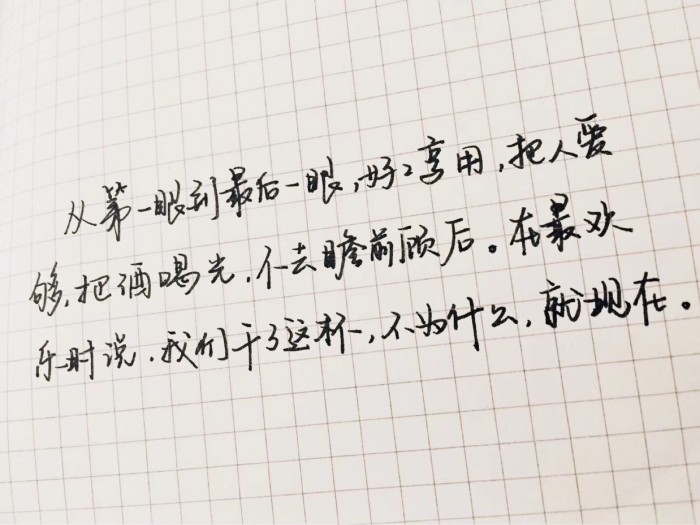 从第一眼到最后一眼,好々享用,把人爱
够,把酒喝光,不去瞻前顾后。在最欢
乐时说,我们干了这杯,不为什么,就现在。